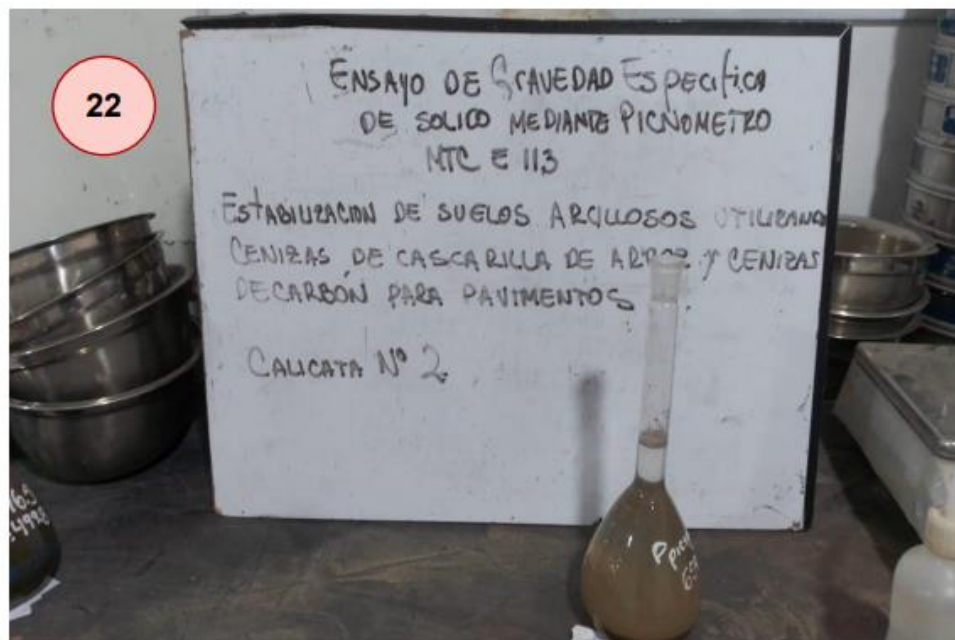 22
ENSAYO DE GRAVEDAD ESPECIFICA
DE SOLIDO MEDIANTE PICNOMETRO
MTC E 113
ESTABILIZACION DE SUELOS ARCILLOSOS UTILIZANDO
CENIZAS DE CASCARILLA DE ARROZ Y CENIZAS
DE CARBÓN PARA PAVIMENTOS
CALICATA Nº 2